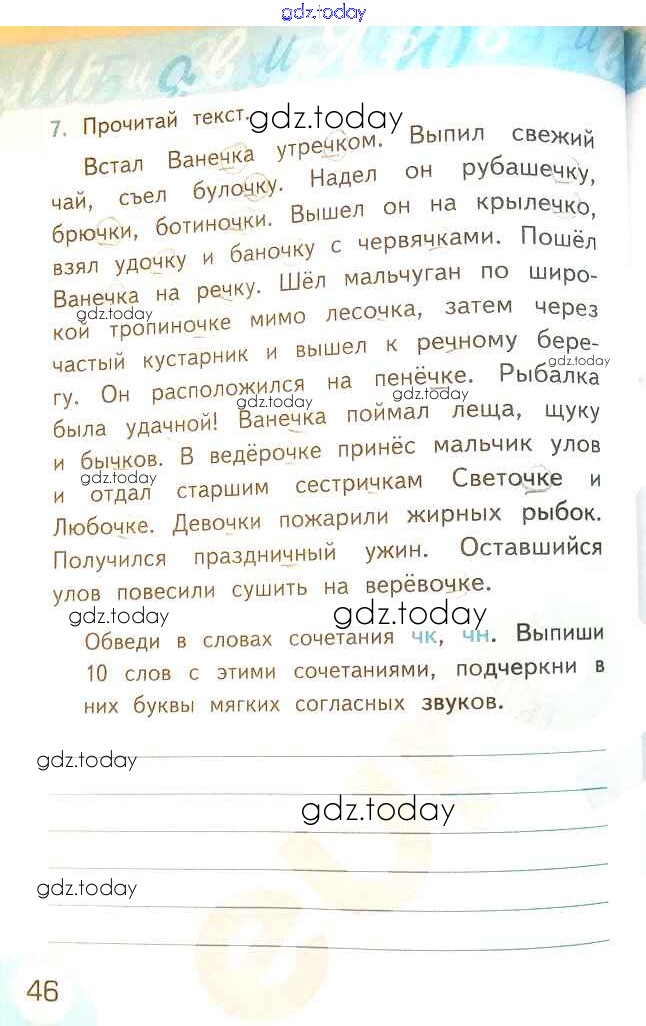 gdz.today
7. Прочитай текст.
gdz.today
Встал Ванечка утречком. Выпил свежий
чай, съел булочку. Надел он рубашечку,
брючки, ботиночки. Вышел он на крылечко,
взял удочку и баночку с червячками. Пошёл
Ванечка на речку. Шёл мальчуган по широ-
gdz.today
кой тропиночке мимо лесочка, затем через
частый кустарник и вышел к речному бере-
gdz.today
гу. Он расположился на пенёчке. Рыбалка
gdz.today
gdz.today
была удачной! Ванечка поймал леща, щуку
и бычков. В ведёрочке принёс мальчик улов
gdz.today
и отдал старшим сестричкам Светочке и
Любочке. Девочки пожарили жирных рыбок.
Получился праздничный ужин. Оставшийся
улов повесили сушить на верёвочке.
gdz.today
gdz.today
Обведи в словах сочетания чк, чн. Выпиши
10 слов с этими сочетаниями, подчеркни в
них буквы мягких согласных звуков.
gdz.today
gdz.today
gdz.today
46